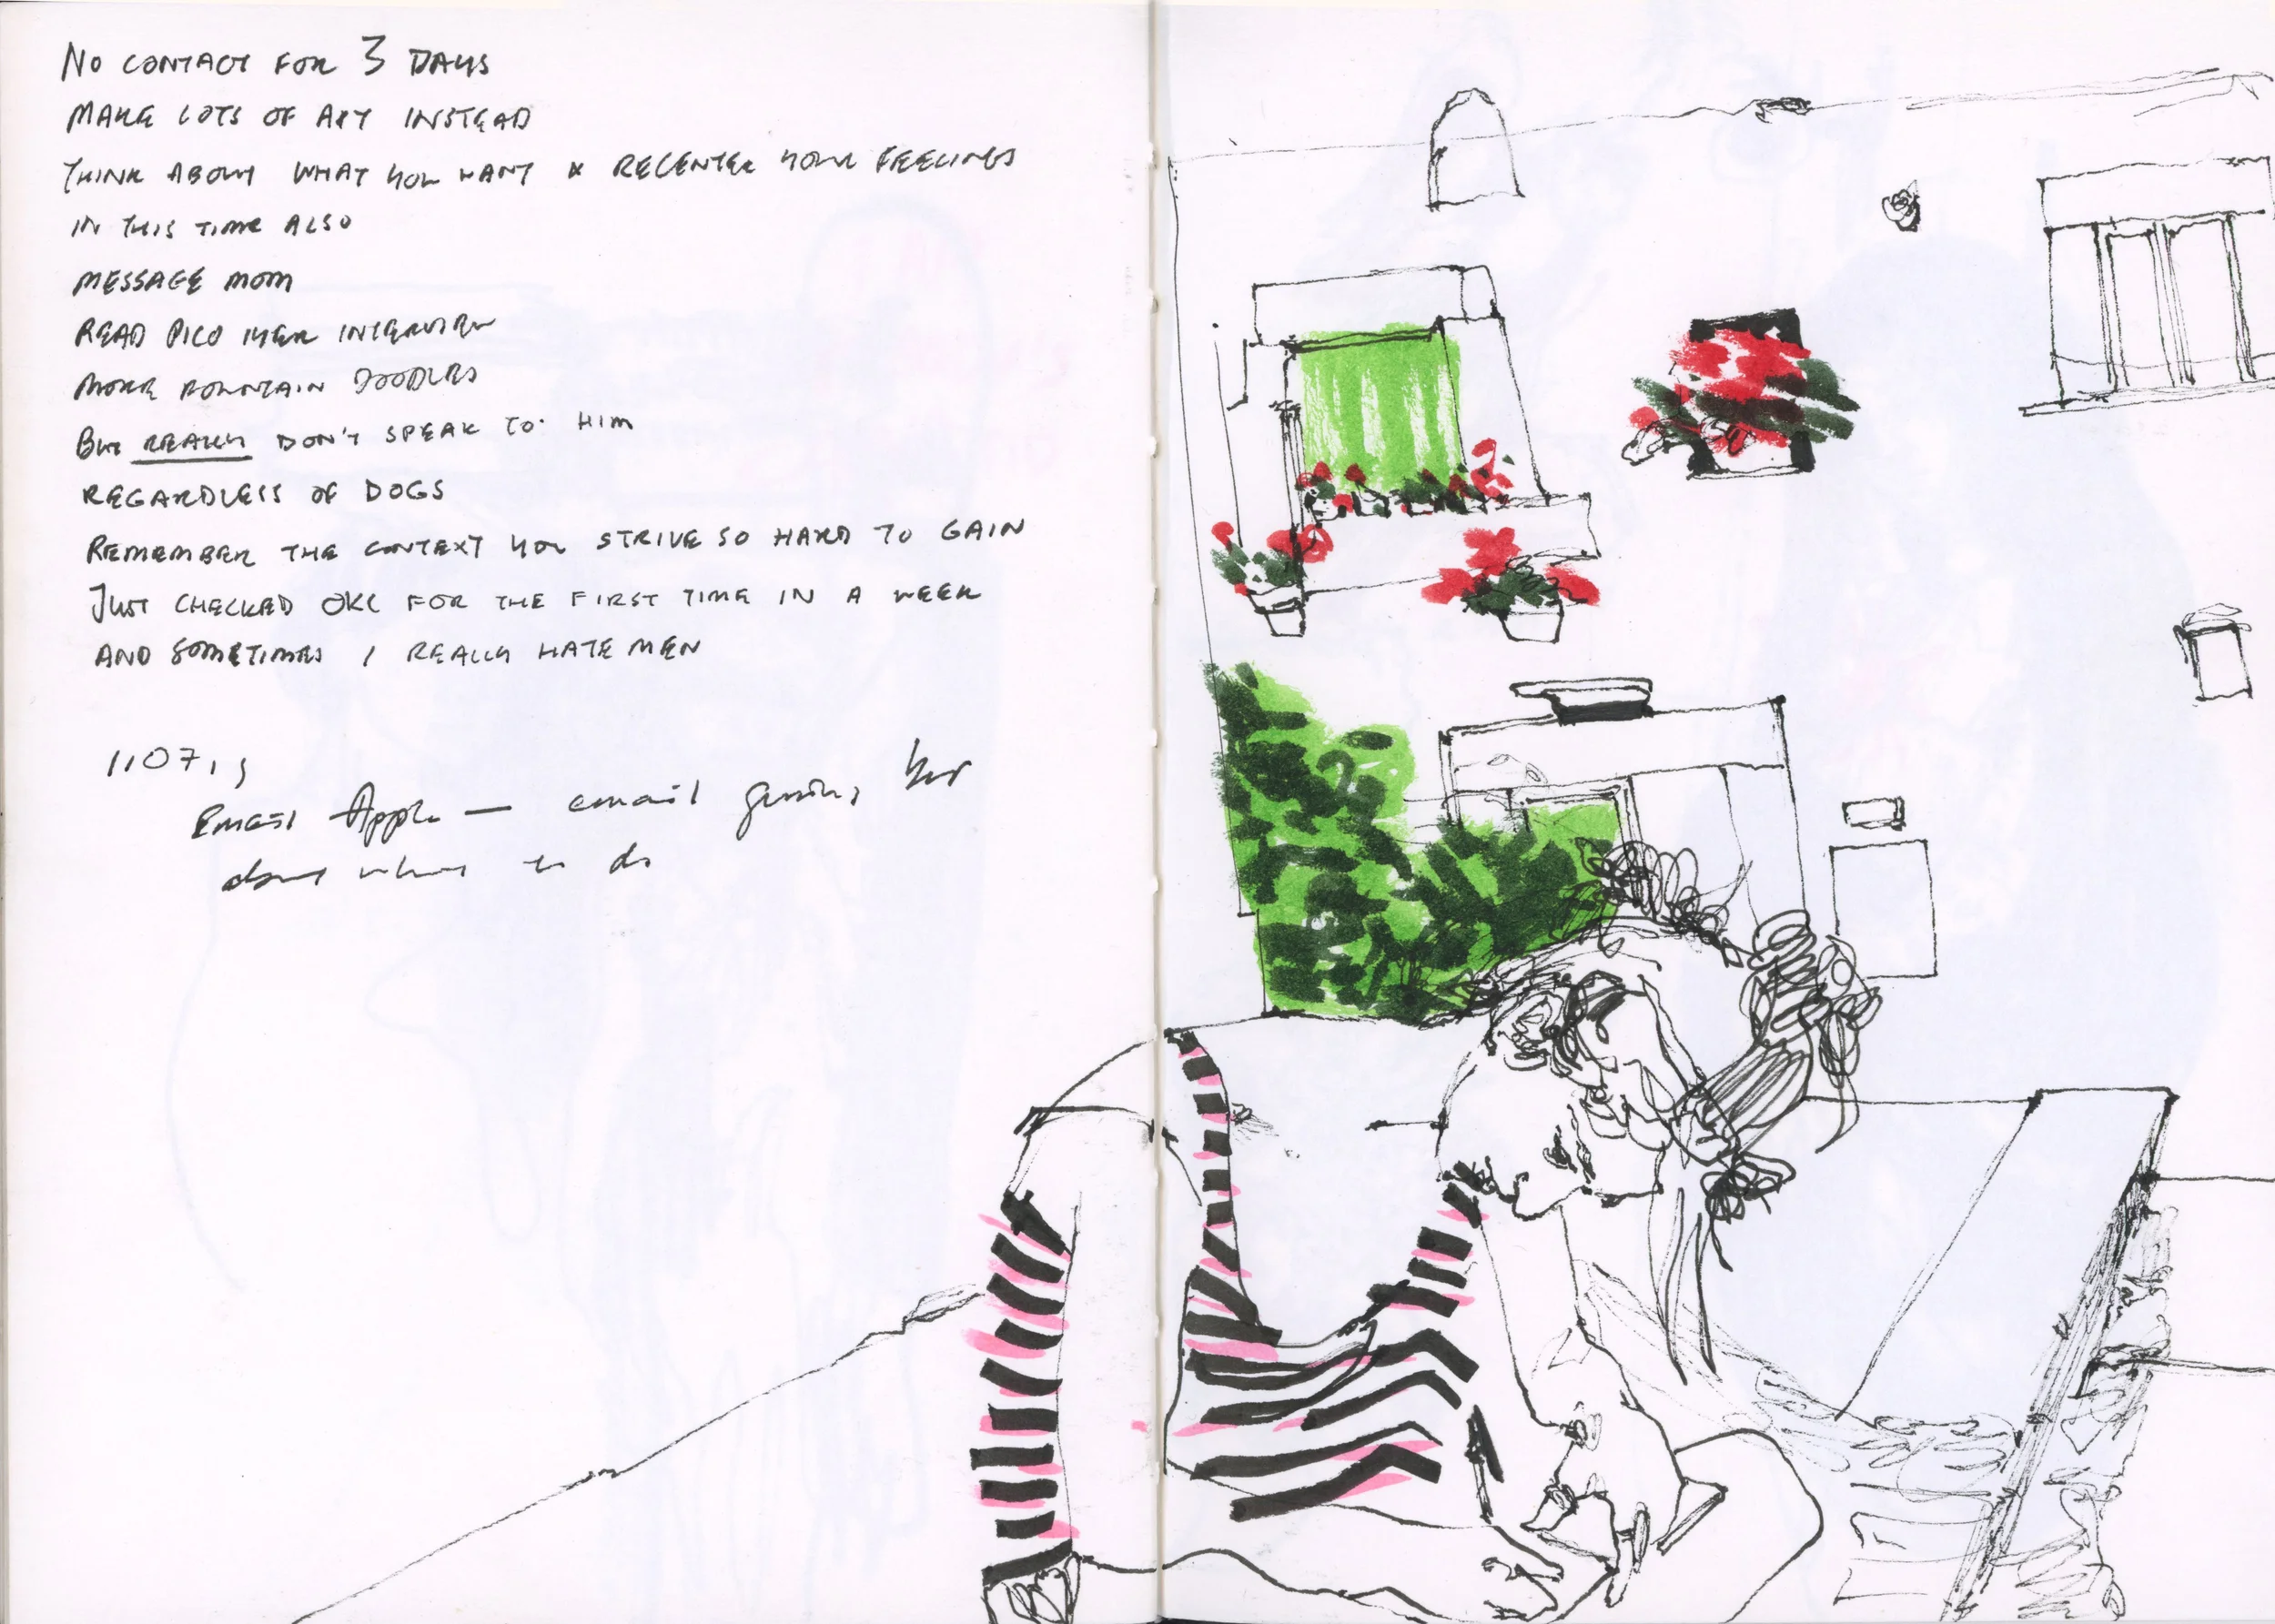 NO CONTACT FOR 3 DAYS
MAKE LOTS OF ART INSTEAD
THINK ABOUT WHAT YOU WANT & RECENTER YOUR FEELINGS
IN THIS TIME ALSO
MESSAGE MOM
READ PICO IYER INTERVIEW
MORE FOUNTAIN DOODLES
BUT REALLY DON'T SPEAK TO HIM
REGARDLESS OF DOGS
REMEMBER THE CONTEXT YOU STRIVE SO HARD TO GAIN
JUST CHECKED OKC FOR THE FIRST TIME IN A WEEK
AND SOMETIMES I REALLY HATE MEN
Email Apple — email
about what to do